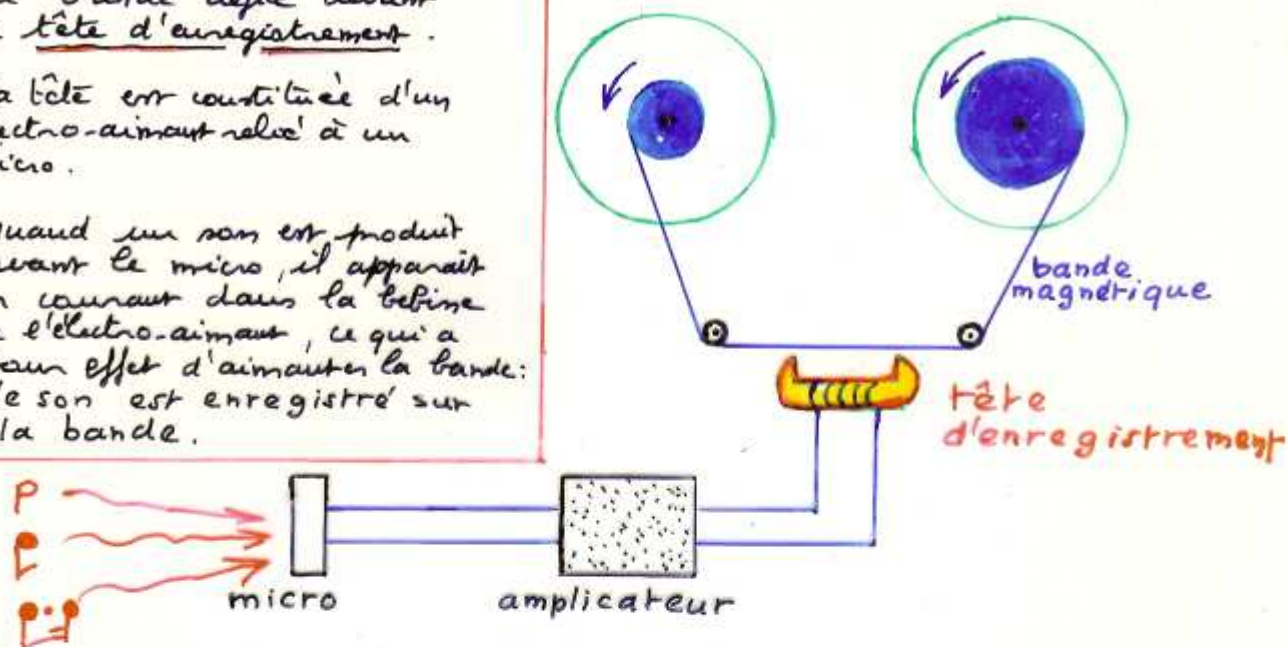 bande défile devant
tête d'enregistrement.
a tête est constituée d'un
ectro-aimant relié à un
icro.
uand un son est produit
vant le micro, il apparait
n courant dans la bobine
e l'électro-aimant, ce qui a
our effet d'aimanter la bande:
le son est enregistré sur
la bande.
bande
magnétique
tête
d'enregistrement
micro
amplicateur